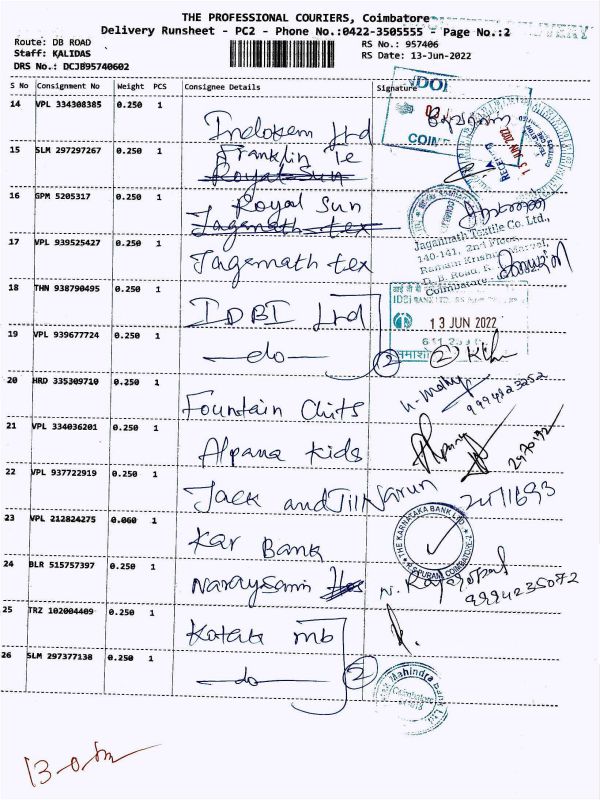 THE PROFESSIONAL COURIERS, Coimbatore
Delivery Runsheet - PC2 - Phone No.:0422-3505555 - Page No.:2
Route: DB ROAD
RS No.: 957406
Staff: KALIDAS
RS Date: 13-Jun-2022
DRS No.: DCJB95740602
S No Consignment No Weight PCS Consignee Details Signature
14 VPL 334308385 0.250 1
Indokem Ltd
15 SLM 297297267 0.250 1
Franklin Te
Royal Sun
16 GPM 5205317 0.250 1
Royal Sun
Jagannath tex
17 VPL 939525427 0.250 1
Jagannath tex
Jagannath Textile Co. Ltd.,
140-141, 2nd Floor,
Coimbatore
18 THN 938790495 0.250 1
IDBI Ltd
IDBI BANK LTD.
13 JUN 2022
19 VPL 939677724 0.250 1
do
2
2
20 HRD 335309710 0.250 1
Fountain Chits
9994923252
21 VPL 334036201 0.250 1
Alpana Kids
2470192
22 VPL 937722919 0.250 1
Jack and Jill
Narun
23 VPL 212824275 0.060 1
Kar Bank
THE KARNATAKA BANK LTD.
R S PURAM, COIMBATORE-2
24 BLR 515757397 0.250 1
Naraysami
9994235072
25 TRZ 102004409 0.250 1
Kotak mb
26 SLM 297377138 0.250 1
do
2
Mahindra Bank
Coimbatore